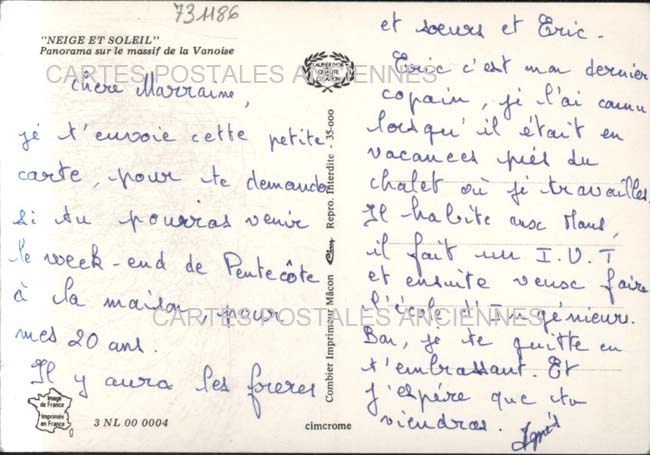 731186
"NEIGE ET SOLEIL"
Panorama sur le massif de la Vanoise
CARTES POSTALES ANCIENNES
Chère Marraine,
je t'envoie cette petite
carte, pour te demander
si tu pourras venir
le week-end de Pentecôte
à la maison, pour
mes 20 ans.
Il y aura les frères
et soeurs et Eric.
Eric c'est mon dernier
copain, je l'ai connu
lorsqu'il était en
vacances près du
chalet où je travailles.
Il habite aux Mans,
il fait un I.U.T
et ensuite veux faire
l'école d'Ingénieur.
Bon, je te quitte en
t'embrassant. Et
j'espére que tu
viendras. Agnès
CARTES POSTALES ANCIENNES
Combier Imprimeur Mâcon Cim Repro. Interdite - 35-000
Image
de France
Imprimée
en France
3 NL 00 0004
cimcrome